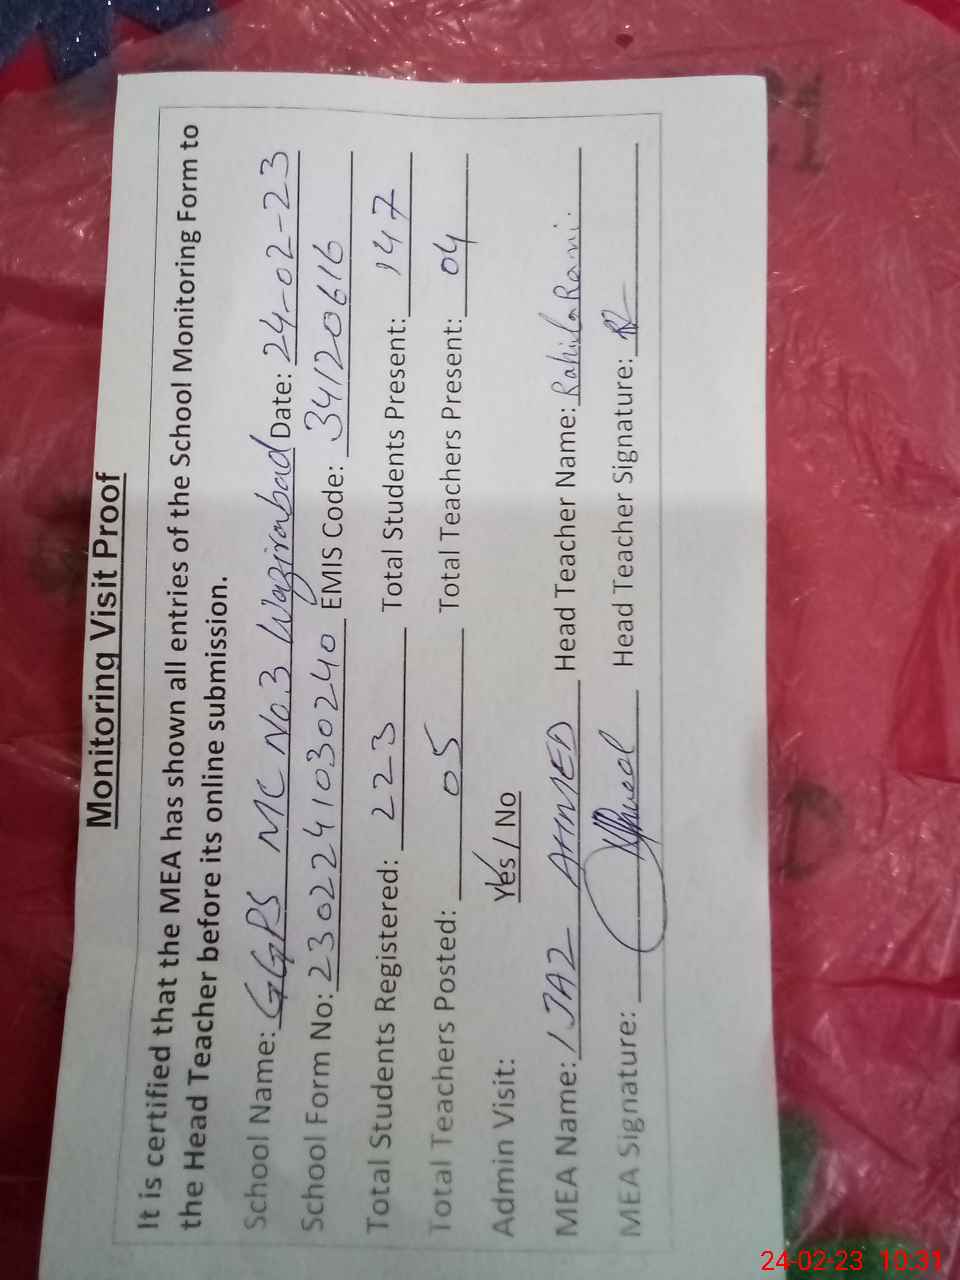 Monitoring Visit Proof
It is certified that the MEA has shown all entries of the School Monitoring Form to
the Head Teacher before its online submission.
School Name: GGPS MC No.3 Wazirabad Date: 24-02-23
School Form No: 23022410300240 EMIS Code: 34120616
Total Students Registered: 223 Total Students Present: 147
Total Teachers Posted: 05 Total Teachers Present: 04
Admin Visit: Yes / No
MEA Name: IJAZ AHMED Head Teacher Name: Rahila Rani
MEA Signature: Head Teacher Signature:
24-02-23 10:31